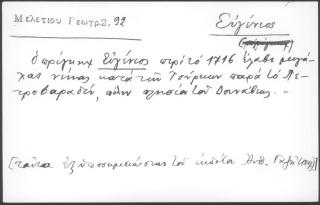 Μελετίου Γεωγρ2, 92
Εὐγένιος
ὁ πρίγκηψ Εὐγένιος περὶ τὸ 1716 ἔλαβε μεγά-
λας νίκας κατὰ τῶν Τούρκων παρὰ τὸ Πε-
τροβαραδὲν, πλησίον τοῦ Δουνάβεως. -
[ταῦτα ἐξ ὑποσημειώσεως τοῦ ἐκδότου Ἀνθ. Γαζῆ]